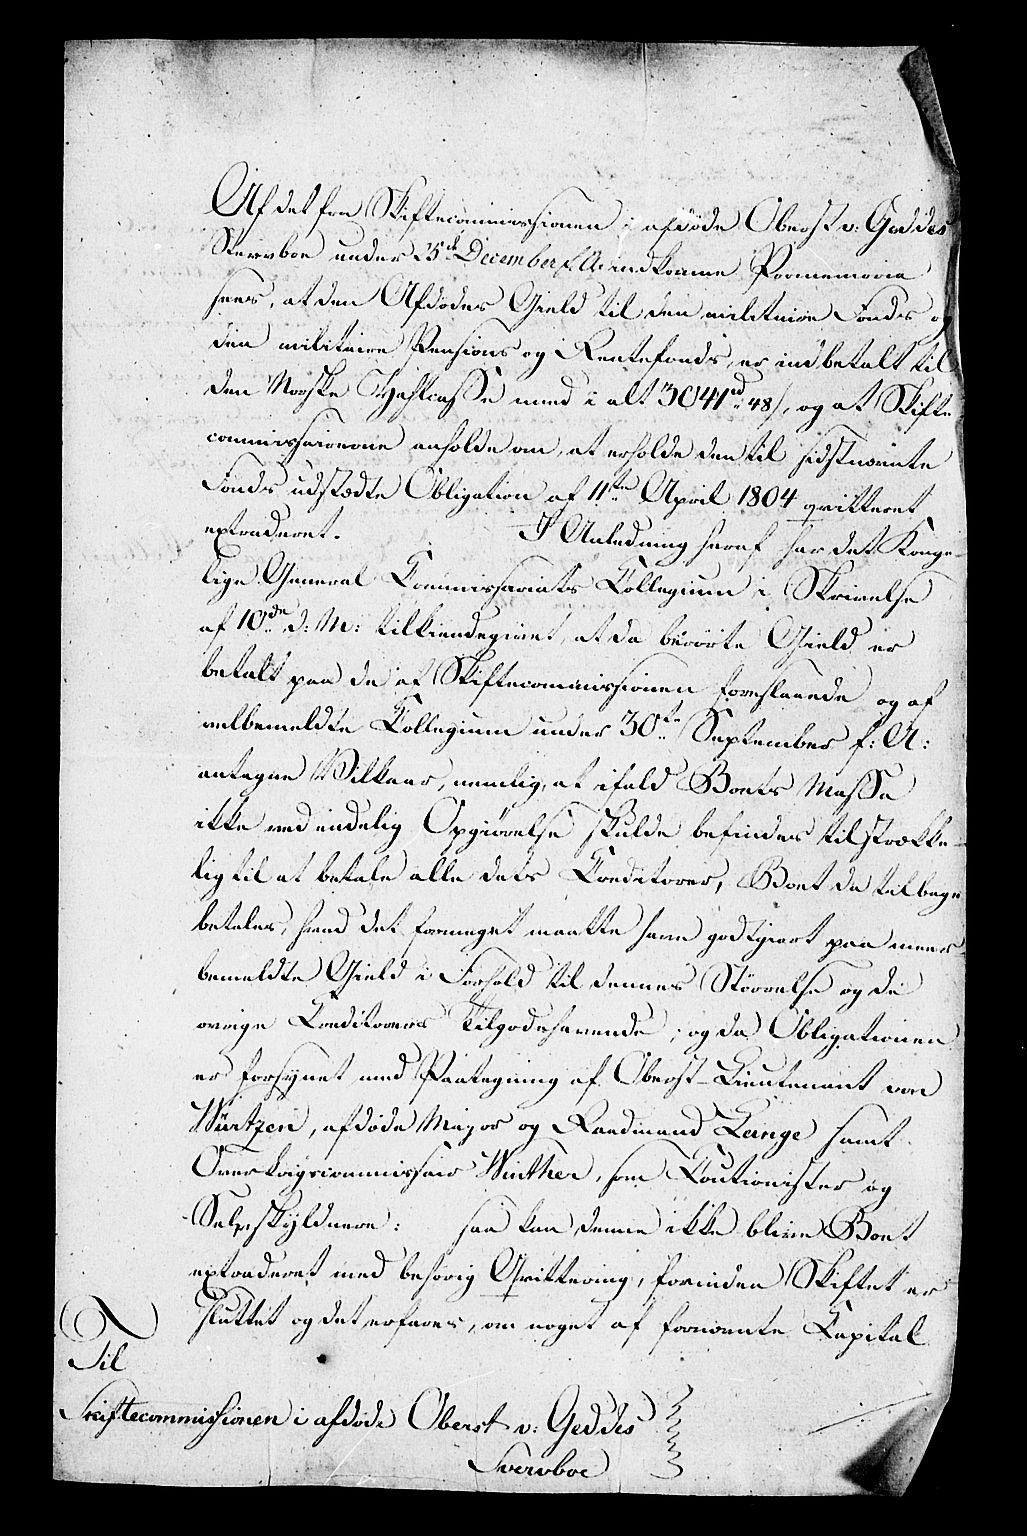 Af det fra Skiftecommissionen i afdøde Oberst v: Geddes
Stervboe under 25de December f. A. indkomne Promemoria
sees, at den Afdødes Gield til den militaire Fonds og
den militaire Pensions og Rentefonds, er indbetalt til
den Norske Zahlcasse med i alt 3041 rd 48 s, og at Skifte-
commissairerne anholde om, at erholde den til sidstnævnte
Fonds udstædte Obligation af 11te April 1804 qvitteret
extraderet. I Anledning heraf har det Konge-
lige General Commissariats Collegium i Skrivelse
af 10de d: M: tilkiendegivet, at da berørte Gield er
betalt paa de af Skiftecommissionen foreslaaede og af
velbemeldte Collegium under 30te September f: A:
antagne Vilkaar, nemlig, at ifald Boets Masse
ikke ved endelig Opgiørelse skulde befindes tilstrække-
lig til at betale alle dets Creditorer, Boet da tilbage
betales, hvad det formeget maatte have godtgiort paa meer-
bemeldte Gield i Forhold til dennes Størrelse og de
øvrige Creditorers Tilgodehavende; og da Obligationen
er forsynet med Paategning af Oberst-Lieutenant von
Würtzen, afdøde Major og Raadmand Leinge samt
Overkrigscommissair Winther, som Cautionister og
Selvskyldnere: saa kan denne ikke blive Boet
extraderet med behørig Qvittering, forinden Skiftet er
sluttet og det erfares, om noget af fornævnte Capital
Til
Skiftecommissionen i afdøde Oberst v: Geddes
Stervboe